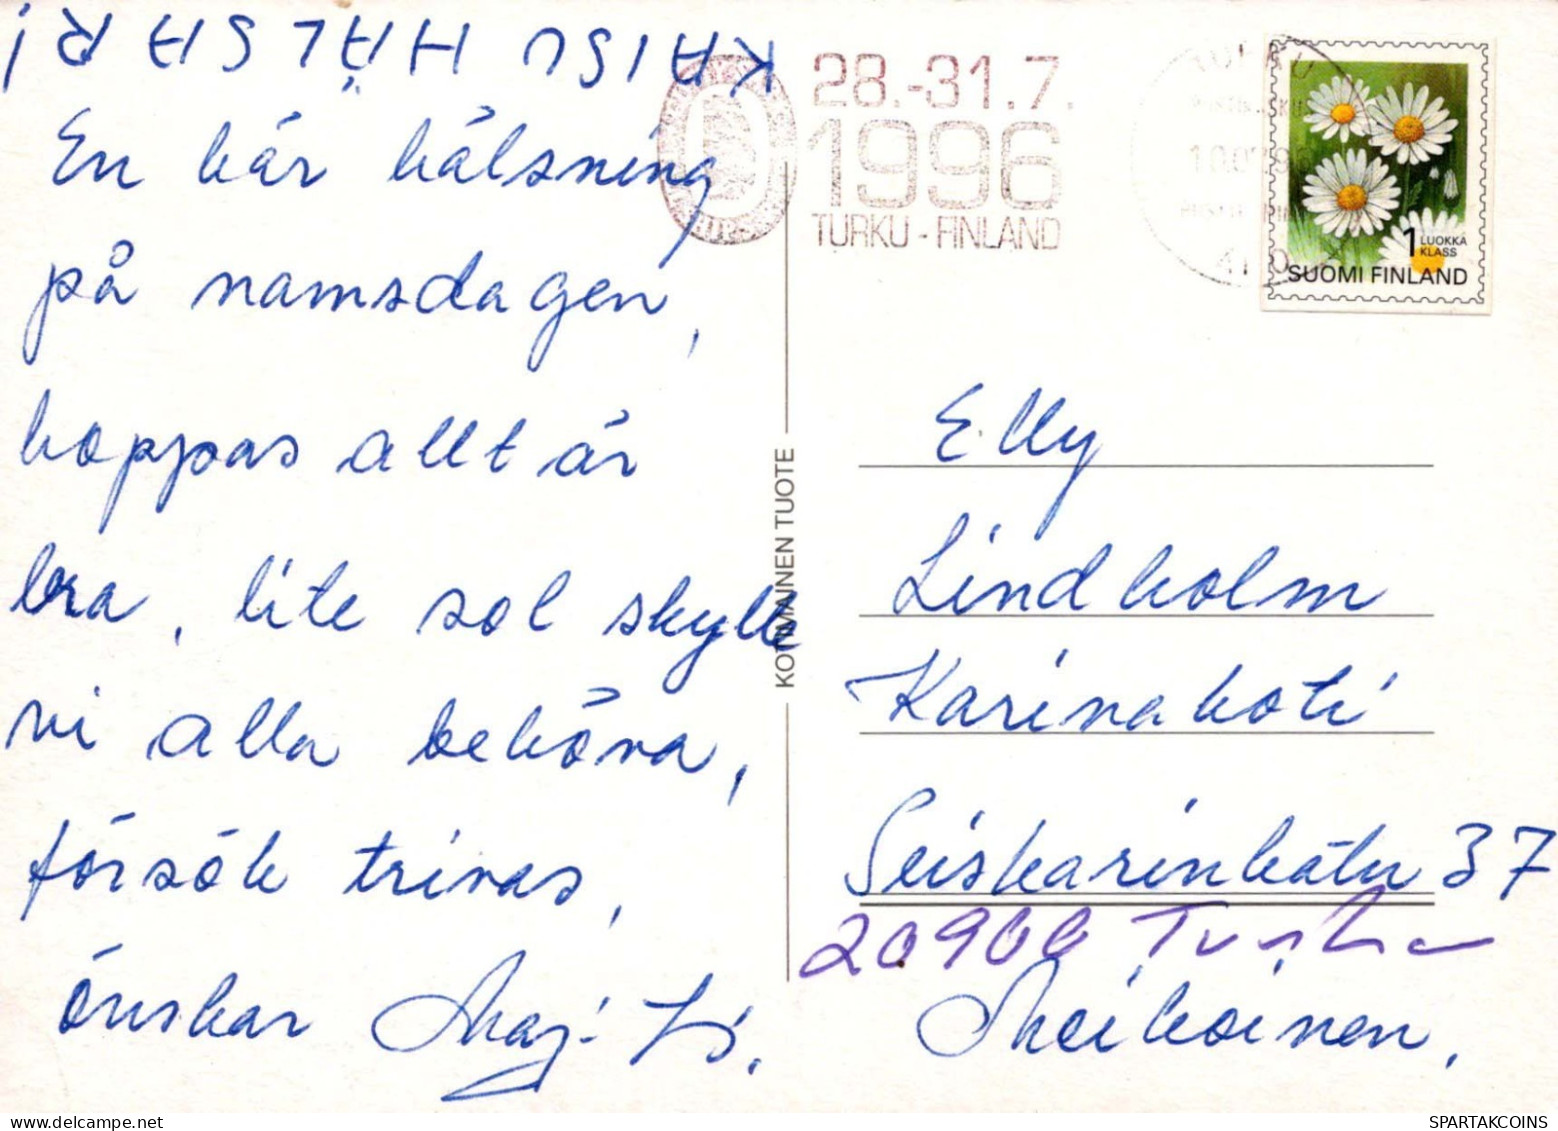 KAISU HÄLSAR!
En kär hälsning
på namsdagen,
hoppas allt är
bra, lite sol skylle
vi alla behöva,
försök trivas,
önskar Maj-Lis.
28.-31.7.
1996
TURKU - FINLAND
1 LUOKKA
KLASS
SUOMI FINLAND
KOTIMAINEN TUOTE
Elly
Lindholm
Karinakoti
Seiskarinkatu 37
20900 Turku
Meikoinen.
SPARTAKCOINS